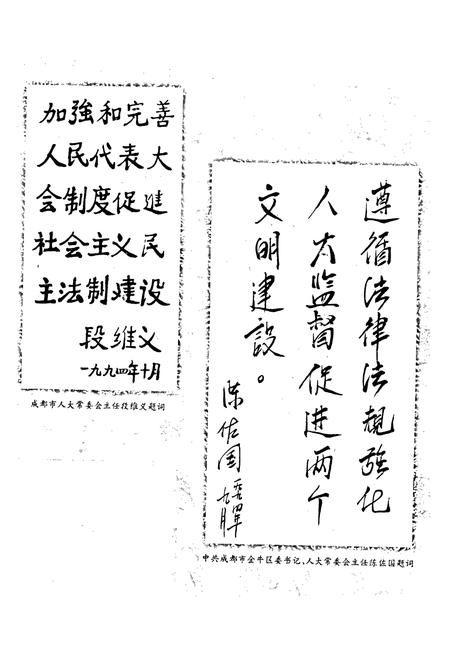 加強和完善
人民代表大
会制度促進
社会主义民
主法制建设
段维义
一九九四年十月
成都市人大常委会主任段维义题词
遵循法律法規強化
人大监督促进两个
文明建設。
陈佐国
中共成都市金牛区委书记、人大常委会主任陈佐国题词